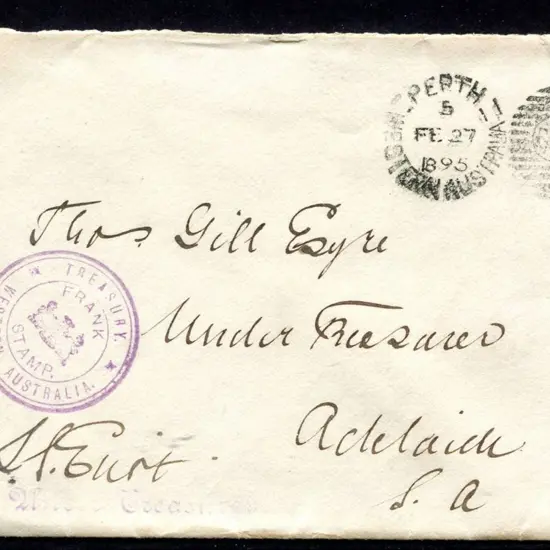 PERTH
WESTERN AUSTRALIA
5
FE 27
1895
Thos Gill Esqre
TREASURY.
WESTERN AUSTRALIA.
FRANK
STAMP.
Under Treasurer
Adelaide
S. A
Under Treasurer